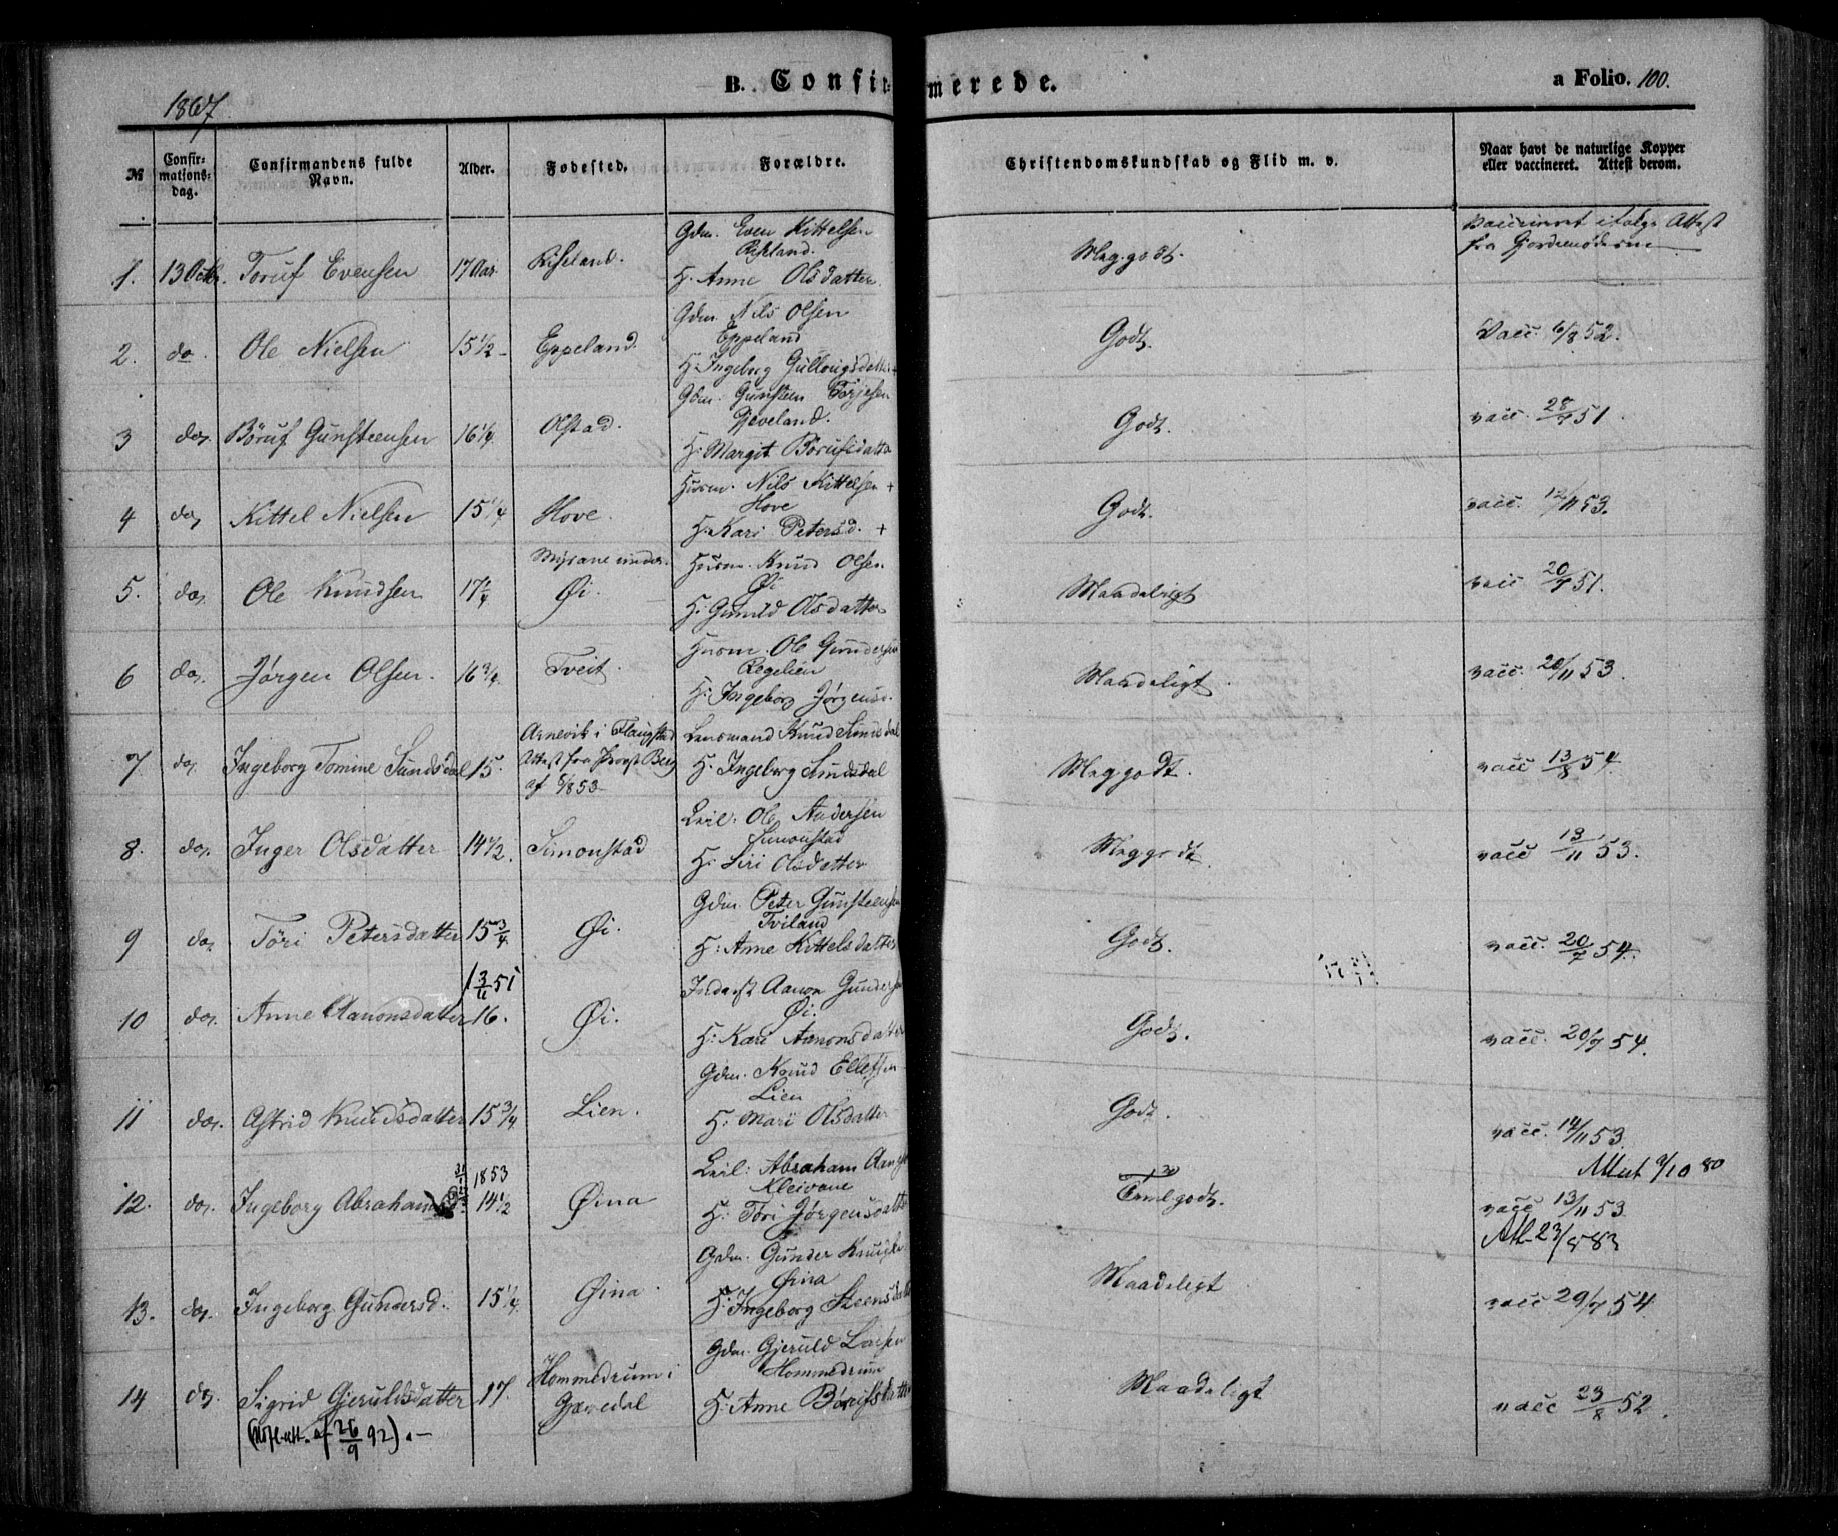 1867
B. Confirmerede.
a Folio. 100.
№
Confir-
mations-
dag.
Confirmandens fulde
Navn.
Alder.
Fødested.
Forældre.
Christendomskundskab og Flid m. v.
Naar havt de naturlige Kopper
eller vaccineret. Attest derom.
1. 13 Octbr. Toruf Evensen 17 Aar Riseland.
Gdm. Even Kittelsen
Riseland.
H. Anne Olsdatter
Meg. godt.
Vaccineret ifølge Attest
fra Gjordemoderen
2. do. Ole Nielsen 15 1/2 Eppeland.
Gdm. Nils Olsen
Eppeland
H. Ingeborg
Godt.
Vacc. 6/8 52.
3 do. Böruf Gunsteensen 16 1/4 Olstad.
Gdm. Gunsteen Terjesen
Gjeveland.
H. Margit Börufsdatter
Godt.
vacc. 51.
4 do. Kittel Nielsen 15 1/4 Hove.
Husm. Nils Kittelsen +
Hove
H. Kari Petersd. +
Godt.
vacc. 12/11 53.
5. do. Ole Knudsen 17 1/4 Myrane under
Øi.
Husm. Knud Olsen
Øi
H. Gunild Olsdatter
Maadeligt
vacc 20/7 51.
6 do. Jørgen Olsen. 16 3/4 Tveit.
Husm. Ole Gundersen
Regelien
H. Ingeborg Jørgensd.
Maadeligt
vacc. 20/11 53.
7 do. Ingeborg Tomine Sundsdal 15. Arnevik i
Attest fra Provst Berg
af
Lensmand Knud Sundsdal
H. Ingeborg Sundsdal
Meg godt.
vacc 13/8 54.
8. do. Inger Olsdatter 14 1/2. Simonstad
Leil. Ole Andersen
Simonstad
H. Siri Olsdatter
Meg godt.
vacc 13/11 53.
9 do. Töri Petersdatter 15 3/4 Øi.
Gdm. Peter Gunsteensen
Tviland
H: Anne Kittelsdatter
Godt.
vacc. 20/7 54.
3/11 51
10 do. Anne Aanonsdatter 16. Øi.
Inderst Aanon Gundersen
Øi.
H: Kari Aanonsdatter
Godt.
vacc. 20/7 54.
11 do. Astrid Knudsdatter 15 3/4 Lien.
Gdm. Knud Ellefsen
Lien
H: Mari Olsdatter
Godt.
vacc. 14/11 53.
Attest 9/10 80
1853
12. do. Ingeborg 14 1/2 Øina
Leil: Abraham
Kleivane
H: Töri Jørgensdatter
godt.
vacc 13/11 53
Att. 23/8 83
13. do. Ingeborg Gundersd. 15 1/4 Øina.
Gdm. Gunder Knudsen
Øina
H: Ingeborg Steensdatter
Maadeligt
vacc 29/7 54.
14 do. Sigrid Gjeruldsdatter 17. Hommedrum i
Gjøvedal
Gdm. Gjeruld
Hommedrum
H: Anne Börufsdatter
Maadeligt
vacc 23/8 52.
att. af 26/9 92).-